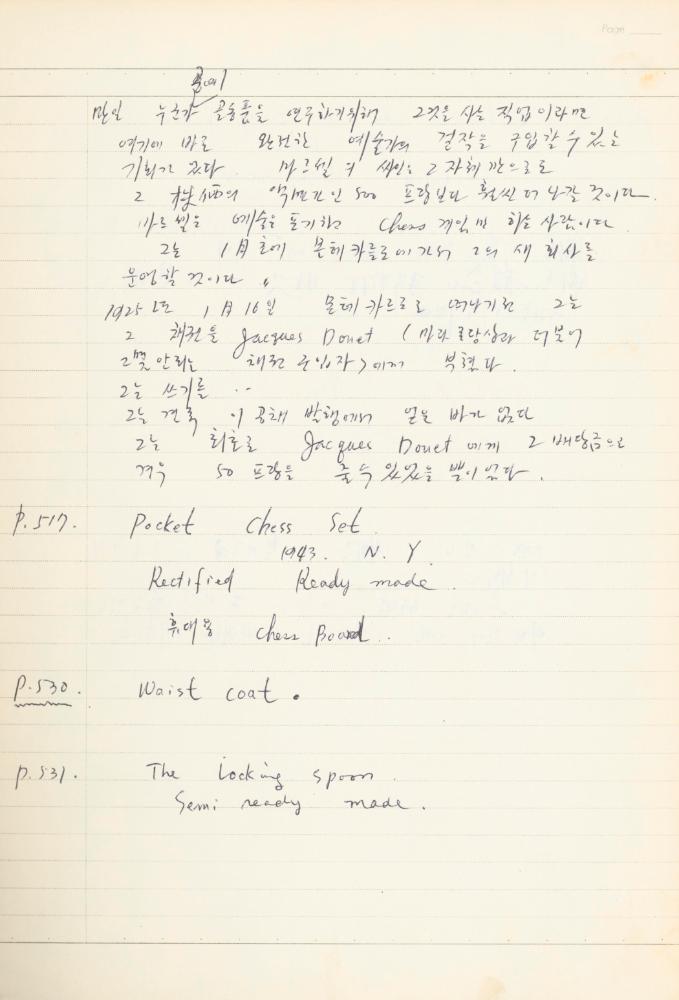 Page
공예
만일 누군가 골동품을 연구하기위해 그것을 사는 직업이라면
여기에 바로 완전한 예술가의 걸작을 구입할 수 있는
기회가 있다. 마르셀의 싸인은 그 자체만으로도
그 株価의 액면가인 500 프랑보다 훨씬 더 나갈 것이다.
마르셀은 예술을 포기하고 Chess 게임만 하는 사람이다.
그는 1月호에 몬테카를로에 가서 그의 새 회사를
운영할 것이다 〃
1925년 1月 16일 몬테카르로로 떠나기전 그는
그 채권을 Jacques Douet (마리 로당상과 더불어
그몇 안되는 채권 구입자)에게 부쳤다.
그는 쓰기를 ..
그는 결국 이 공채 발행에서 얻은 바가 없다
그는 회호로 Jacques Douet 에게 그 배당금으로
겨우 50 프랑을 줄 수 있었을 뿐이었다.
P.517. Pocket Chess Set.
1943. N. Y.
Rectified Ready made.
휴대용 Chess Board..
P.530. Waist coat.
P.531. The Locking spoon.
Semi ready made.